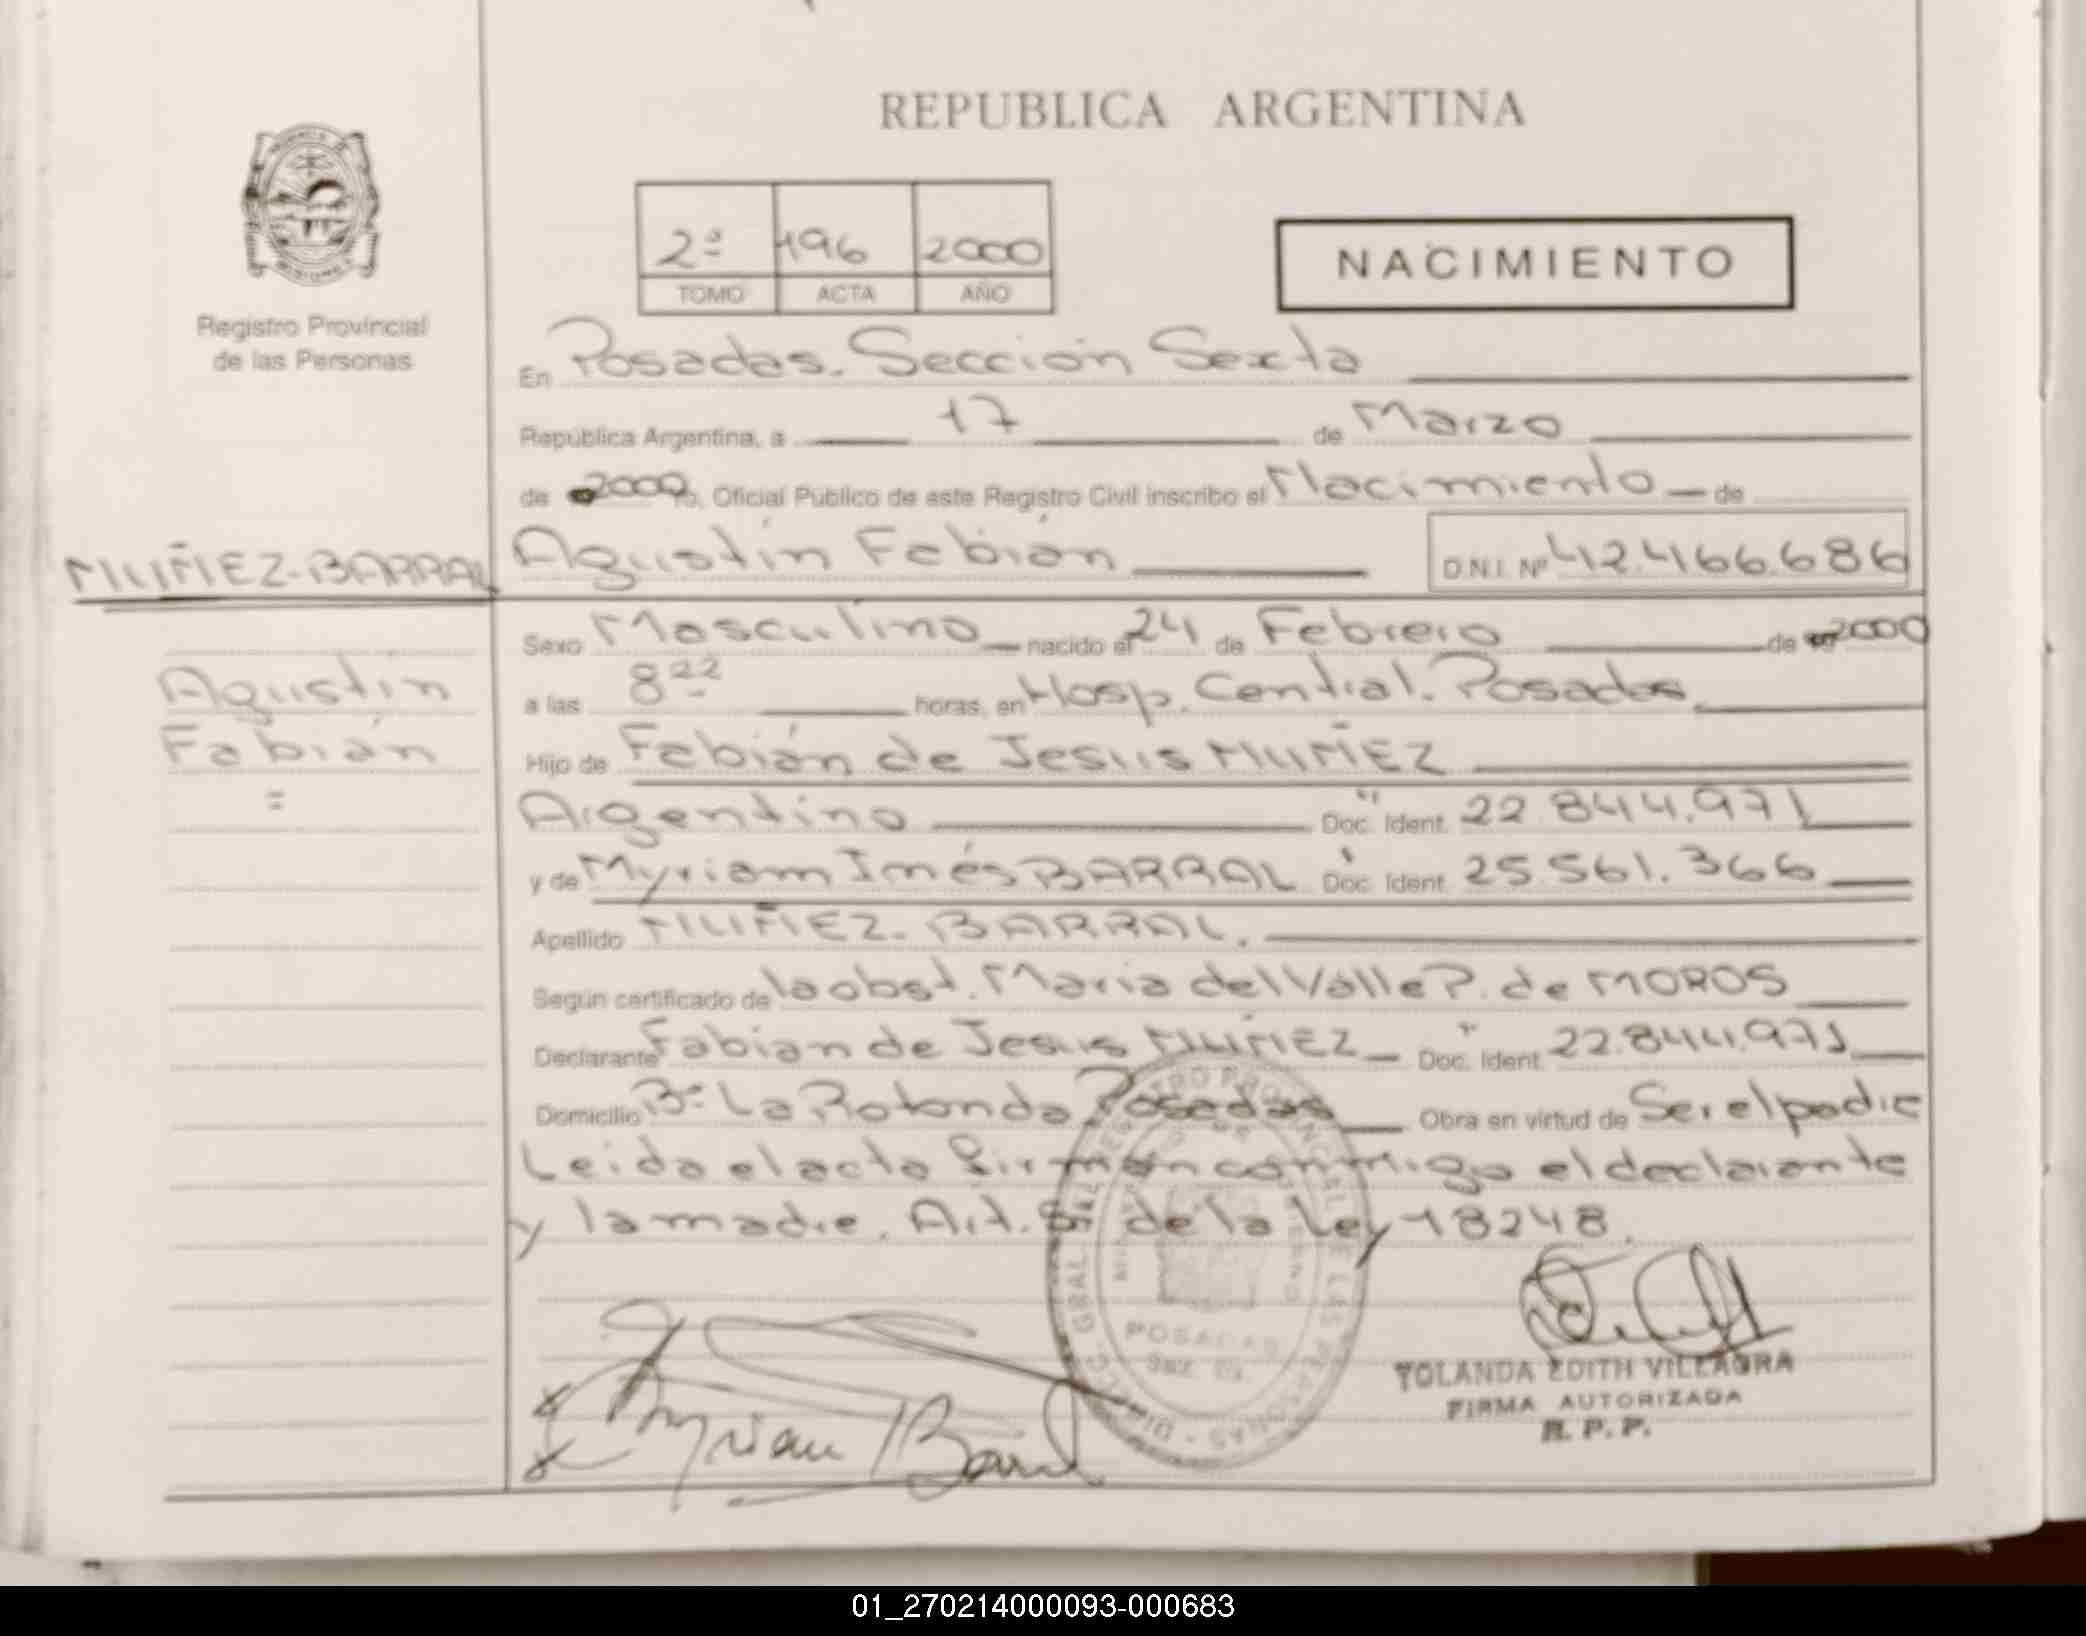 REPUBLICA ARGENTINA
2ª 196 2000
TOMO ACTA AÑO
NACIMIENTO
Registro Provincial
de las Personas
En Posadas. Sección Sexta
República Argentina, a 17 de Marzo
de 2000 Yo, Oficial Público de este Registro Civil inscribo el Nacimiento de
MUÑEZ-BARRAL Agustín Fabián D.N.I. Nº 42.466.686
Sexo Masculino nacido el 24 de Febrero de 2000
Agustín
a las 8 22 horas, en Hosp. Central. Posadas.
Fabián
Hijo de Fabián de Jesus MUÑEZ
Argentino Doc. Ident. 22.844.971
y de Myriam Inés BARRAL Doc. Ident. 25.561.366
Apellido MUÑEZ-BARRAL.
Según certificado de la obst. Maria del Valle P. de MOROS
Declarante Fabian de Jesus MUÑEZ Doc. Ident. 22.844.971
Domicilio Bº La Rotonda Posadas Obra en virtud de Ser el padre
Leida el acta firman conmigo el declarante
y la madre. Art. de la Ley 18248.
POSADAS
Myriam Barral
YOLANDA EDITH VILLAGRA
FIRMA AUTORIZADA
R. P. P.
01_270214000093-000683